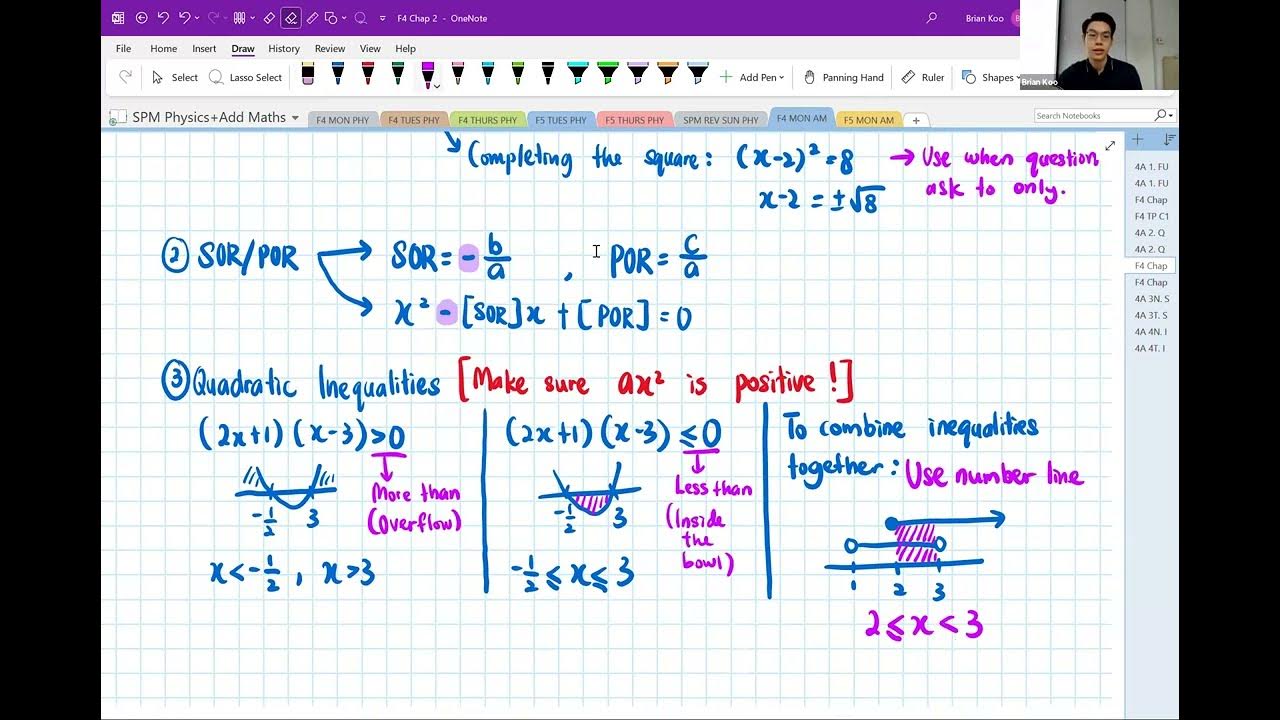 F4 Chap 2 - OneNote
Brian Koo
File Home Insert Draw History Review View Help
Select Lasso Select Add Pen Panning Hand Ruler Shapes
Brian Koo
SPM Physics+Add Maths F4 MON PHY F4 TUES PHY F4 THURS PHY F5 TUES PHY F5 THURS PHY SPM REV SUN PHY F4 MON AM F5 MON AM +
Search Notebooks
Completing the square: (x-2)² = 8 → Use when question
ask to only.
x-2 = ±√8
② SOR/POR SOR = - b/a , POR = c/a
x² - [SOR]x + [POR] = 0
③ Quadratic Inequalities [Make sure ax² is positive!]
(2x+1)(x-3)>0
More than
(Overflow)
-1/2 3
x < -1/2 , x > 3
(2x+1)(x-3) ≤ 0
Less than
(Inside
the
bowl)
-1/2 3
-1/2 ≤ x ≤ 3
To combine inequalities
together: Use number line
1 2 3
2 ≤ x < 3
4A 1. FU
4A 1. FU
F4 Chap
F4 TP C1
4A 2. Q
4A 2. Q
F4 Chap
F4 Chap
4A 3N. S
4A 3T. S
4A 4N. I
4A 4T. I